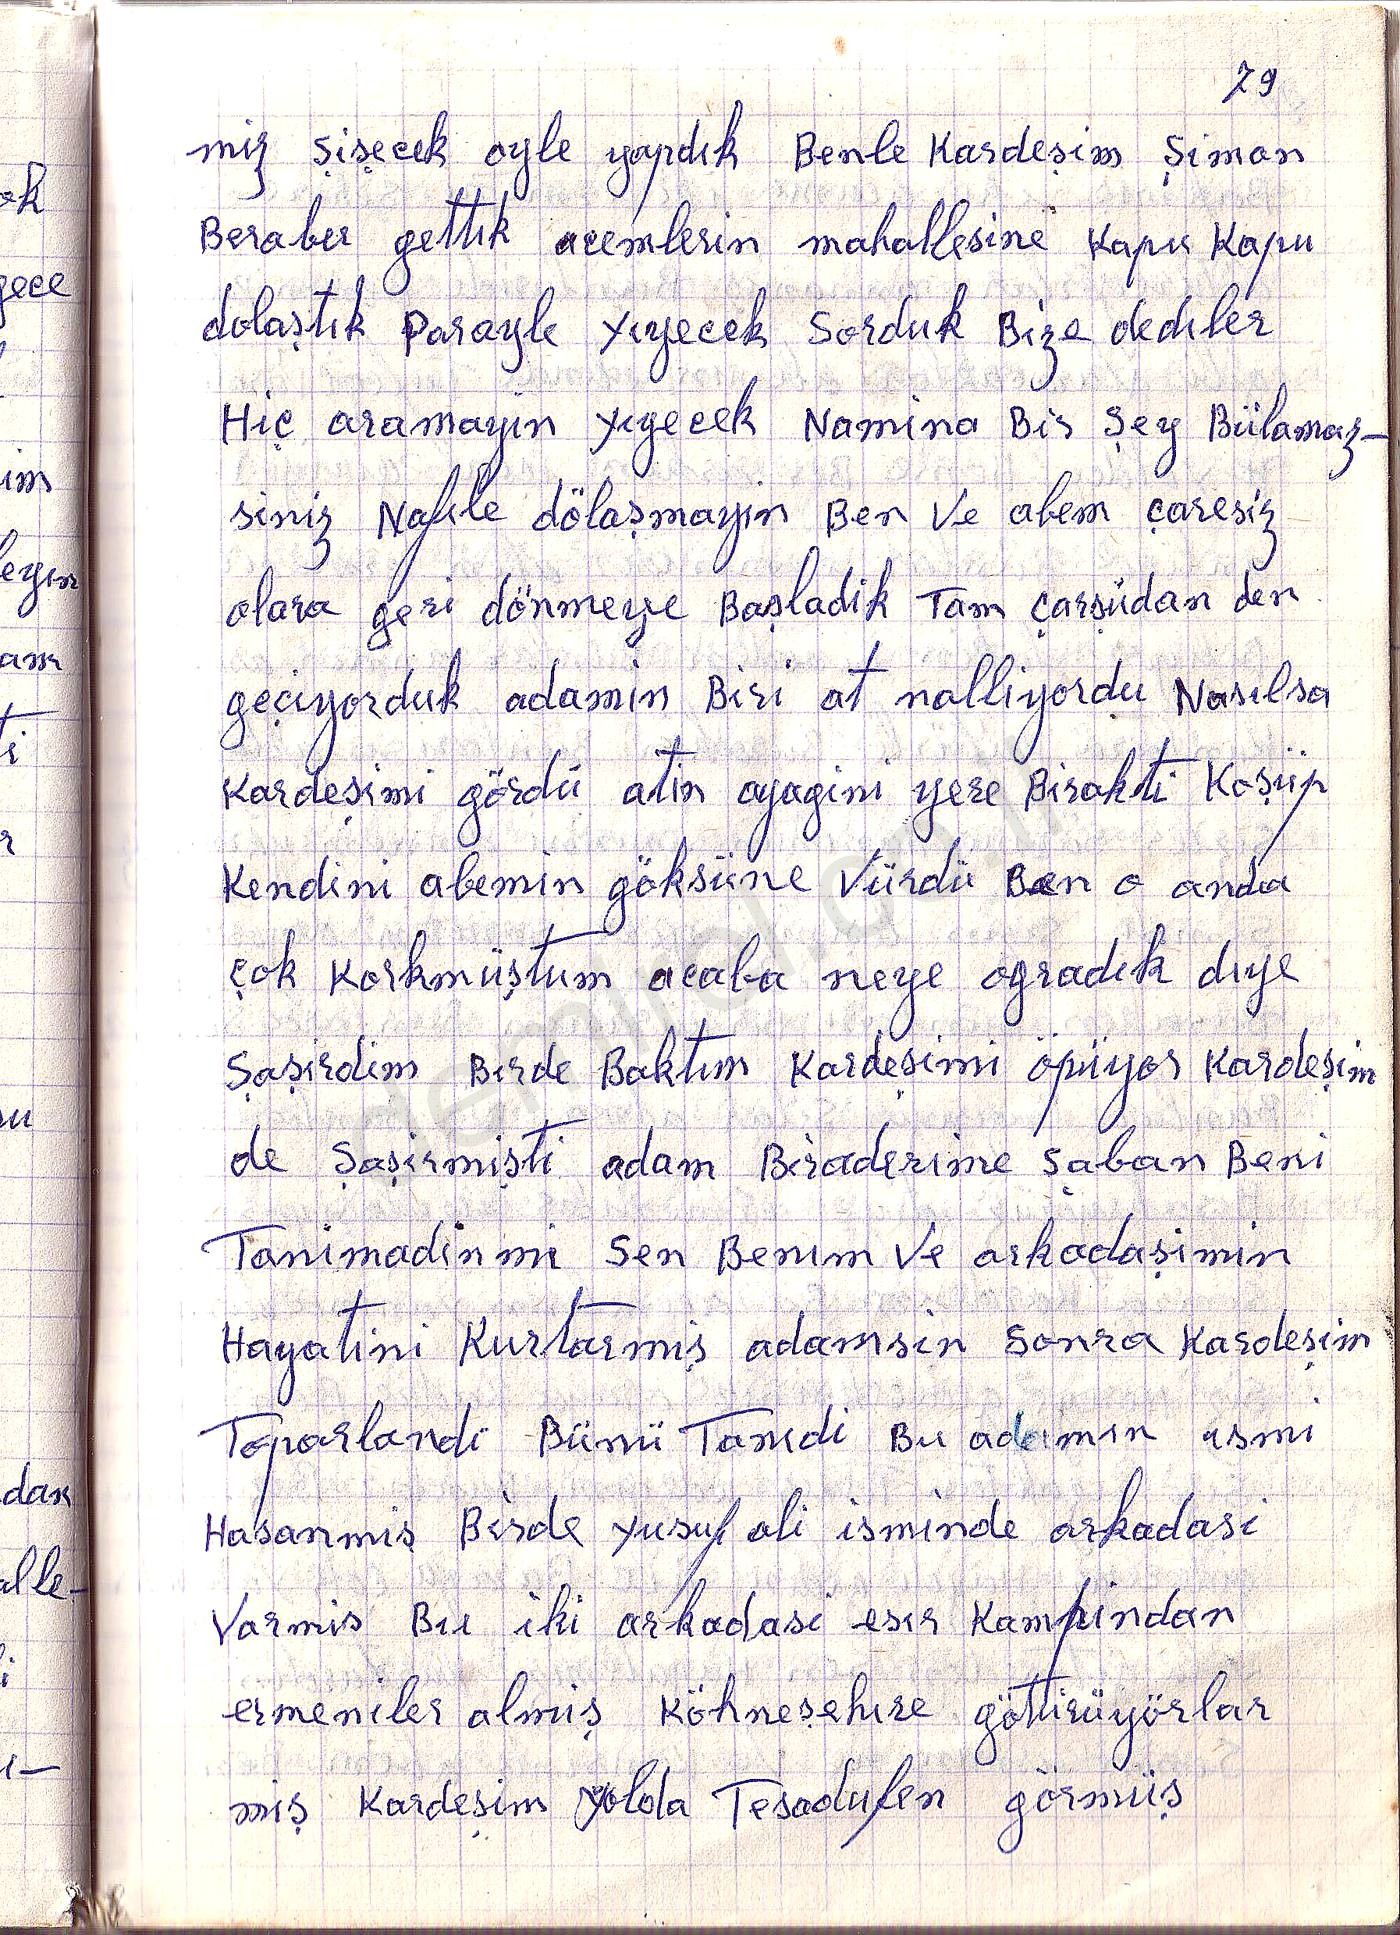 79
miz şişecek oyle yapdık Benle Kardeşim Şimon
Beraber gettık acemlerin mahallesine Kapu Kapu
dolaştık Parayle yıyecek Sorduk Bize dedıler
Hiç aramayın yıyecek Namina Bir Şey Bülamaz-
siniz Nafıle dölaşmayın Ben Ve abem çaresiz
olara geri dönmeye Başladik Tam çarşüdan den
geçiyorduk adamin Biri at nalliyordu Nasılsa
Kardeşimi gördü atin ayagini yere Birakti Koşüp
Kendini abemin göksüne Vürdü Ben o anda
çok Korkmüştum acaba neye ogradık dıye
Şaşirdim Birde Baktım Kardeşimi öpüyor Kardeşim
de Şaşirmişti adam Biraderime Şaban Beni
Tanimadin mi Sen Benım Ve arkadaşimin
Hayatini Kurtarmiş adamsin Sonra Kardeşim
Toparlandi Bünü Tanıdi Bu adamın ısmi
Hasanmiş Birde Yusuf ali isminde arkadasi
Varmis Bu iki arkadasi esır Kampindan
ermenıler almiş Köhneşehıre göttirüyörlar
miş Kardeşim yolda Tesadufen görmüş
ok
gece
im
leyın
am
ti
r
su
dan
alle-
i
ı-
demirol.com